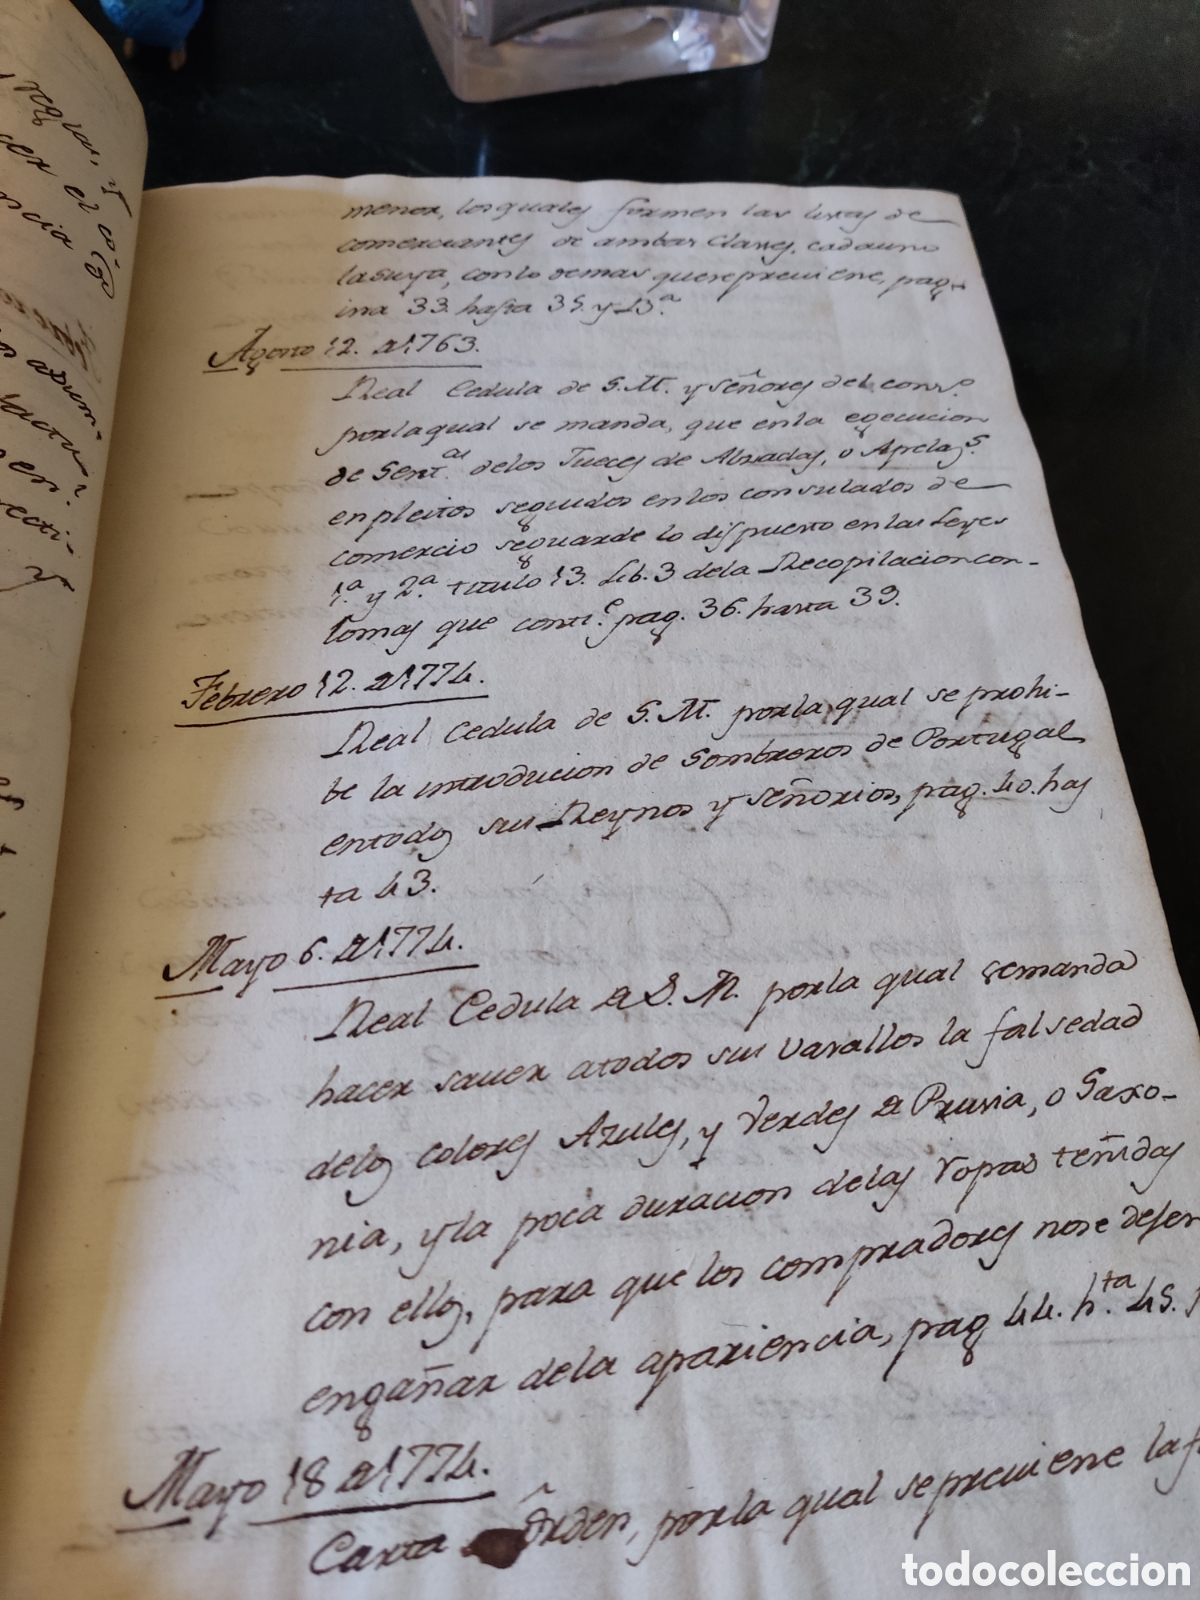 menor, los quales formen las listas de
comerciantes de ambas Clases, cada uno
la suya, con lo demas que se previene, pag-
ina 33. hasta 35. y 13.ª
Agosto 12. de 1763.
Real Cedula de S. M. y Señores del cons.º
por la qual se manda, que en la egecucion
de Sent.as de los Jueces de Alzadas, o Apelaz.s
en pleitos seguidos en los consulados de
comercio se guarde lo dispuesto en las Leyes
1.ª y 2.ª titulo 13. Lib. 3 de la Recopilacion con
lo mas que conti.e pag. 36. hasta 39.
Febrero 12. de 1774.
Real Cedula de S. M. por la qual se prohi-
be la introducion de Sombreros de Portugal
en todos sus Reynos y Señorios, pag. 40. has
ta 43.
Mayo 6. de 1774.
Real Cedula de S. M. por la qual se manda
hacer saver a todos sus vasallos la falsedad
de los colores Azules, y Verdes de Prusia, o Saxo-
nia, y la poca duracion de las ropas teñidas
con ellos, para que los compradores no se dejen
engañar de la apariencia, pag 44. h.ta 45.
Mayo 18 de 1774.
Carta Orden, por la qual se previene la
reglas, y
el co-
todocoleccion